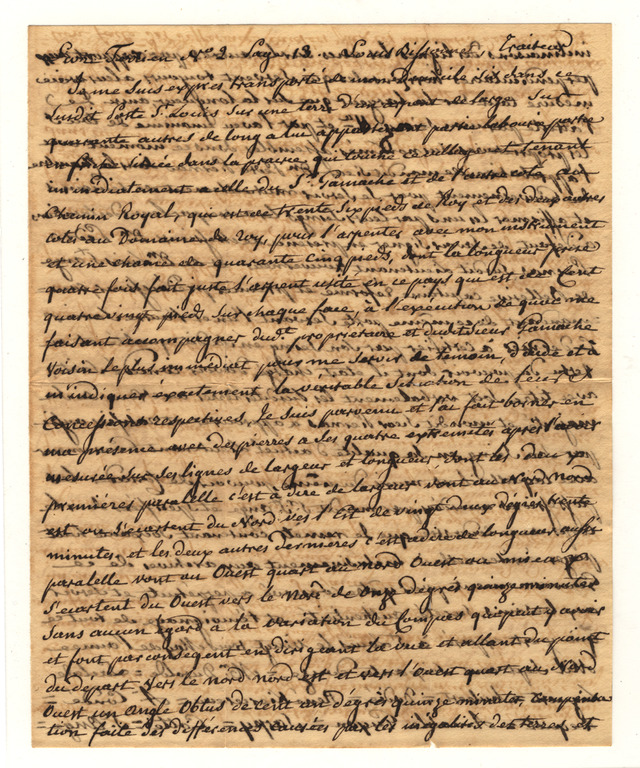 Livre Terrien No 2 Page 12. Louis Bissonnet, Traiteur
Je me suis exprès transporté de mon Domicile ici dans ce
susdit Poste St. Louis sur une terre d'un arpent de large Sur
quarante autres de long a lui appartenant partie labourée partie
en friche située dans la prairie qui touche ce village et tenant
immediatement a celle du Sr. Gamache et de l'autre coté, au
Chemin Royal, qui est de trente six pieds de Roy et des deux autres
cotés au Domaine du Roy, pour l'arpenter avec mon instrument
et une chaine de quarante cinq pieds, dont la longueur prise
quatre fois fait juste l'arpent usité en ce pays qui est de Cent
quatre vingt pieds sur chaque face, à l'execution de quoi me
faisant accompagner dudt. proprietaire et dudit Sieur Gamache
Voisin le plus immédiat pour me servir de temoin, d'aide et à
m'indiquer éxactement la veritable Situation de leurs
Concessions respectives, Je suis parvenu et l'ai fait borner en
ma présence avec des pierres a ses quatre extremités après l'avoir
mesurée sur ses lignes de largeur et longueur, dont les deux
premières paralelle c'est à dire de largeur vont au Nord Nord
est ou s'écartent du Nord vers l'Est de vingt deux dégrés trente
minutes, et les deux autres dernières c'est a dire de longueur aussi
paralelle vont au Ouest quart au Nord Ouest
S'ecartent du Ouest vers le Nord de Onze dégrés quinze minutes
Sans aucun égard à la variation du Compas qu'il peut y avoir
et font par conséquent en dirigeant la vue et allant du point
du départ vers le nord nord est et vers l'Ouest quart au Nord
Ouest un angle Obtus de cent un dégrés quinze minutes, compensa
tion faite des différences causées par les inégalités des terres, et